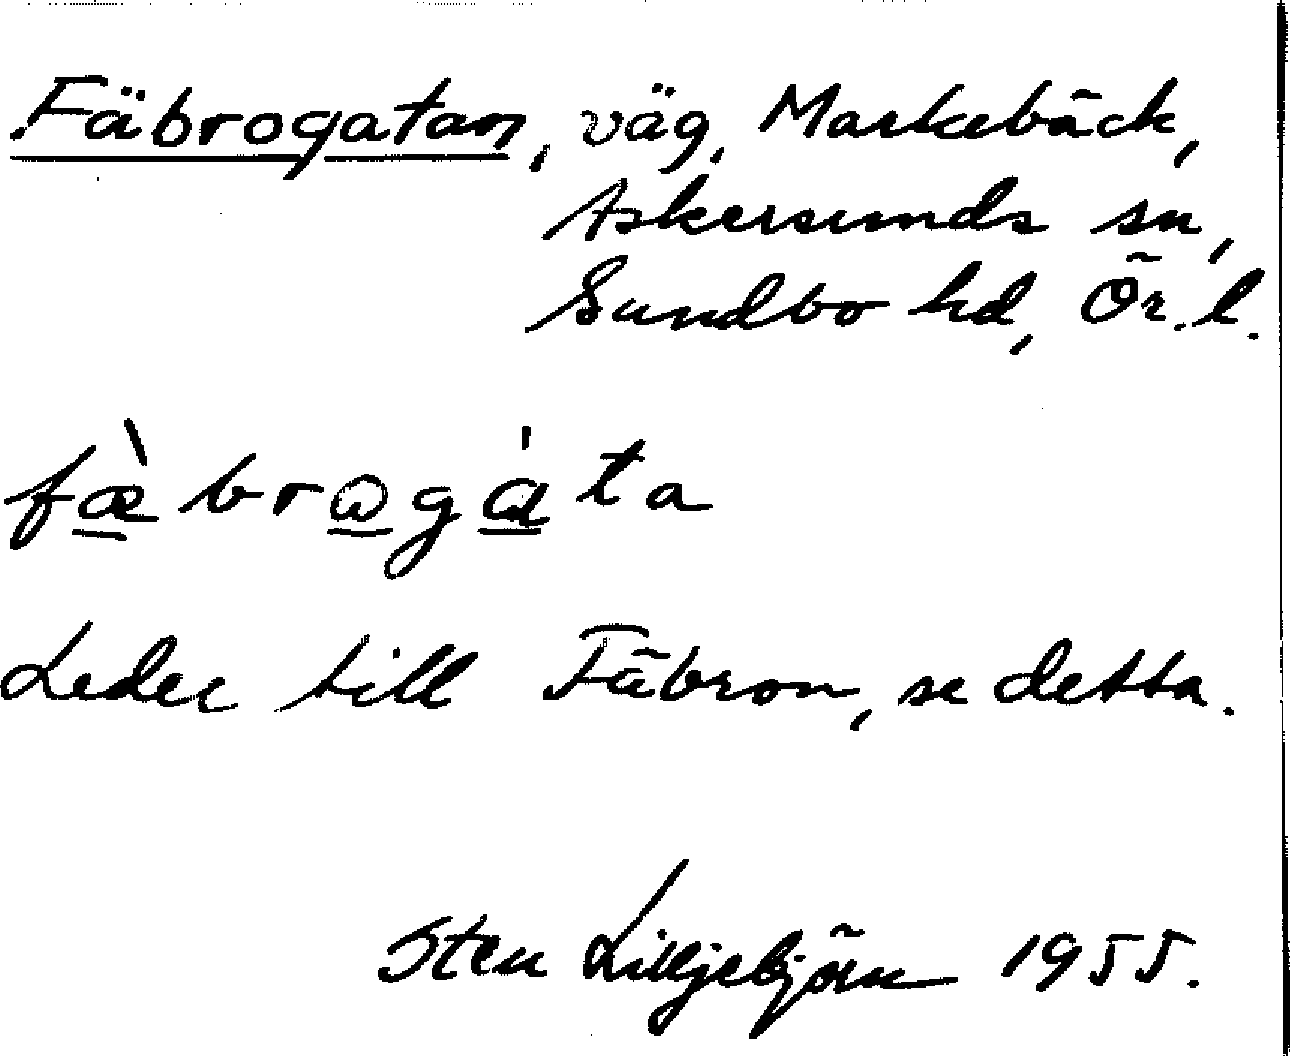 Fäbrogatan, väg, Markebäck,
Askersunds sn,
Sundbo hd, Ör. l.
fæ̀brωgàta
Leder till Fäbron, se detta.
Sten Lilljebjörn 1955.